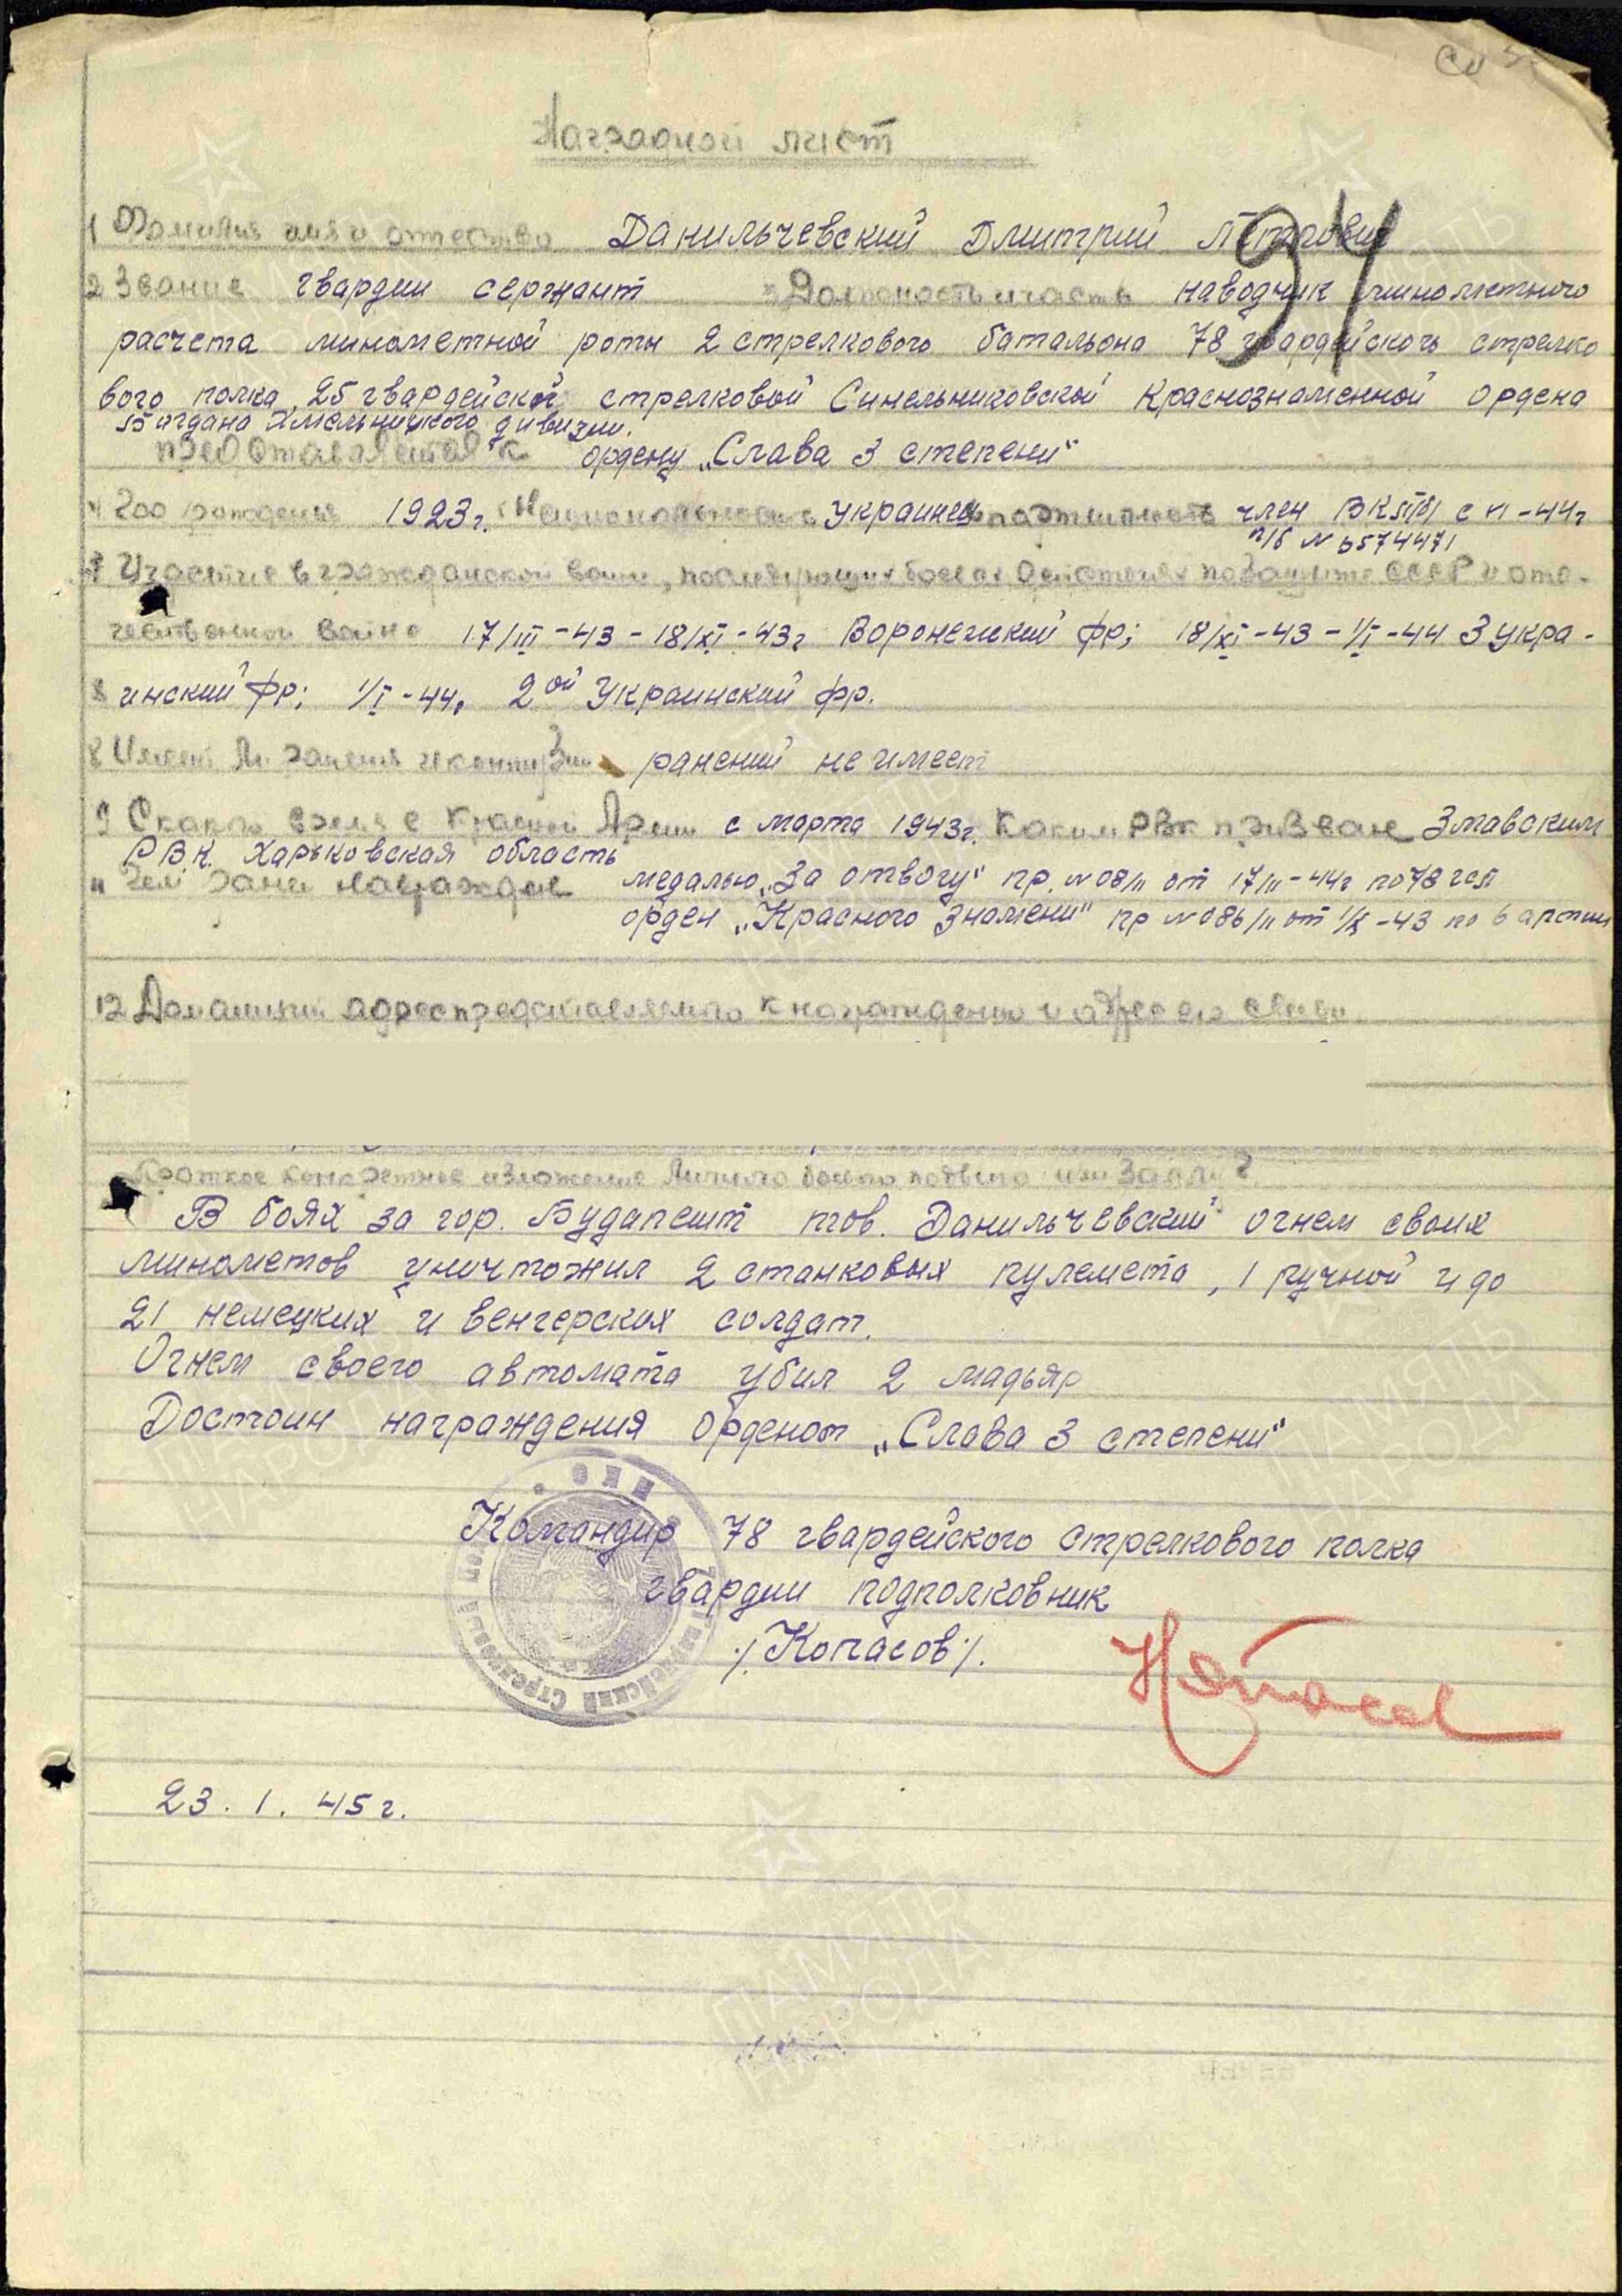 Наградной лист
34
1 Фамилия имя и отчество Данильчевский Дмитрий Петрович
2 Звание гвардии сержант 3 Должность и часть наводчик минометного
расчета минометной роты 2 стрелкового батальона 78 гвардейского стрелко
вого полка 25 гвардейской стрелковой Синельниковской Краснознаменной ордена
Богдана Хмельницкого дивизии.
представляется к ордену „Слава 3 степени"
4 Год рождения 1923г. Национальность украинец партийность член ВКП/б/ с
п/б N 6574471
7 Участие в гражданской войне, последующих боевых действиях по защите СССР и оте-
чественной войне 17/III-43 - 18/XI-43г Воронежский фр; 18/XI-43 - 1/I-44 3 укра-
инский фр; 1/I-44г 2ой Украинский фр.
8 Имеет ли ранения и контузии ранений не имеет
9 С какого время в Красной Армии с марта 1943г. Каким РВК призван Змавским
РВК Харьковская область
11 Чем ранее награжден медалью „За отвагу" пр. N 08/н от 17/II-44г по 78 гсп
орден „Красного Знамени" пр N 086/н от 1/X-43 по 6 армии
12 Домашний адрес представляемого к награждению и адрес его семьи
Краткое конкретное изложение личного боевого подвига или заслуг
В боях за гор. Будапешт тов. Данильчевский огнем своих
минометов уничтожил 2 станковых пулемета, 1 ручной и до
21 немецких и венгерских солдат.
Огнем своего автомата убил 2 мадьяр
Достоин награждения орденом „Слава 3 степени"
Командир 78 гвардейского стрелкового полка
гвардии подполковник
/Копасов/.
23. 1. 45г.
НКО
ПАМЯТЬ
НАРОДА